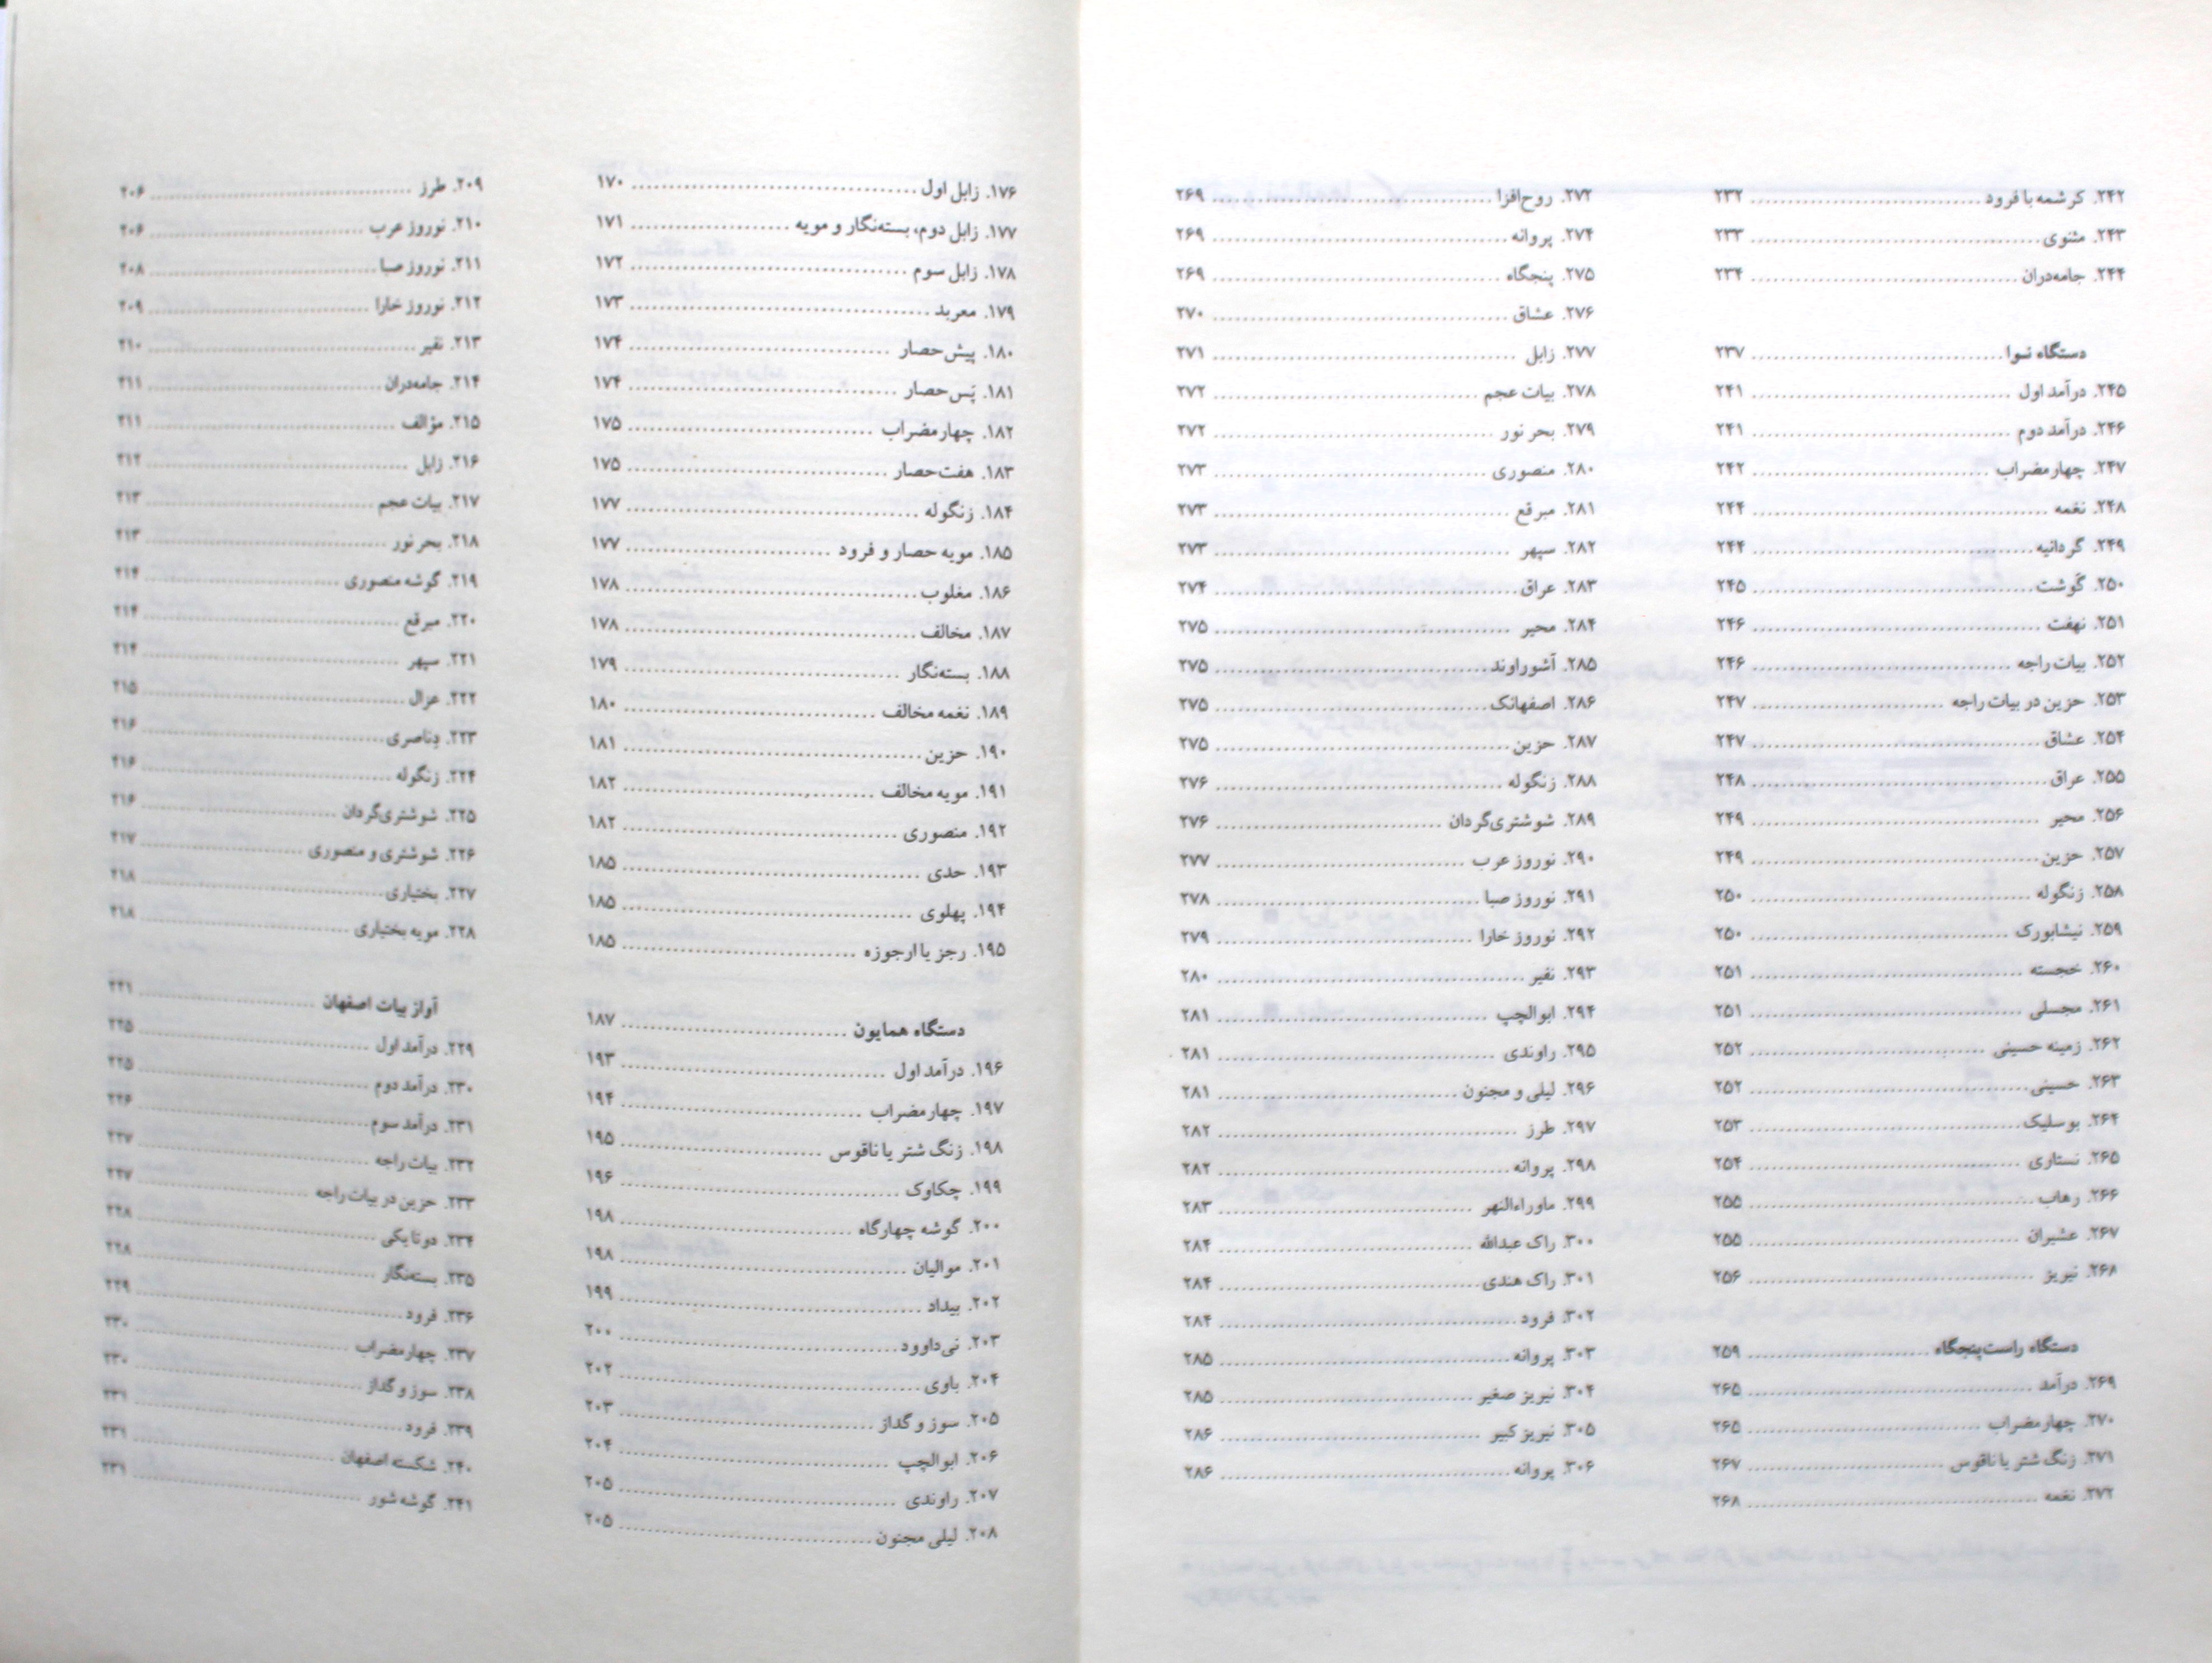 ۱۷۶. زابل اول ........ ۱۷۰
۱۷۷. زابل دوم، بسته‌نگار و مویه ........ ۱۷۱
۱۷۸. زابل سوم ........ ۱۷۲
۱۷۹. معربد ........ ۱۷۳
۱۸۰. پیش‌حصار ........ ۱۷۴
۱۸۱. پَس‌حصار ........ ۱۷۴
۱۸۲. چهارمضراب ........ ۱۷۵
۱۸۳. هفت‌حصار ........ ۱۷۵
۱۸۴. زنگوله ........ ۱۷۷
۱۸۵. مویه حصار و فرود ........ ۱۷۷
۱۸۶. مغلوب ........ ۱۷۸
۱۸۷. مخالف ........ ۱۷۸
۱۸۸. بسته‌نگار ........ ۱۷۹
۱۸۹. نغمه مخالف ........ ۱۸۰
۱۹۰. حزین ........ ۱۸۱
۱۹۱. مویه مخالف ........ ۱۸۲
۱۹۲. منصوری ........ ۱۸۲
۱۹۳. حدی ........ ۱۸۵
۱۹۴. پهلوی ........ ۱۸۵
۱۹۵. رجز یا ارجوزه ........ ۱۸۵
دستگاه همایون ........ ۱۸۷
۱۹۶. درآمد اول ........ ۱۹۳
۱۹۷. چهارمضراب ........ ۱۹۴
۱۹۸. زنگ شتر یا ناقوس ........ ۱۹۵
۱۹۹. چکاوک ........ ۱۹۶
۲۰۰. گوشه چهارگاه ........ ۱۹۸
۲۰۱. موالیان ........ ۱۹۸
۲۰۲. بیداد ........ ۱۹۹
۲۰۳. نی‌داوود ........ ۲۰۰
۲۰۴. باوی ........ ۲۰۲
۲۰۵. سوز و گداز ........ ۲۰۳
۲۰۶. ابوالچپ ........ ۲۰۴
۲۰۷. راوندی ........ ۲۰۵
۲۰۸. لیلی مجنون ........ ۲۰۵
۲۰۹. طرز ........ ۲۰۶
۲۱۰. نوروز عرب ........ ۲۰۶
۲۱۱. نوروز صبا ........ ۲۰۸
۲۱۲. نوروز خارا ........ ۲۰۹
۲۱۳. نفیر ........ ۲۱۰
۲۱۴. جامه‌دران ........ ۲۱۱
۲۱۵. مؤالف ........ ۲۱۱
۲۱۶. زابل ........ ۲۱۲
۲۱۷. بیات عجم ........ ۲۱۳
۲۱۸. بحر نور ........ ۲۱۳
۲۱۹. گوشه منصوری ........ ۲۱۴
۲۲۰. مبرقع ........ ۲۱۴
۲۲۱. سپهر ........ ۲۱۴
۲۲۲. عزال ........ ۲۱۵
۲۲۳. دِناصری ........ ۲۱۶
۲۲۴. زنگوله ........ ۲۱۶
۲۲۵. شوشتری‌گردان ........ ۲۱۶
۲۲۶. شوشتری و منصوری ........ ۲۱۷
۲۲۷. بختیاری ........ ۲۱۸
۲۲۸. مویه بختیاری ........ ۲۱۸
آواز بیات اصفهان ........ ۲۲۱
۲۲۹. درآمد اول ........ ۲۲۵
۲۳۰. درآمد دوم ........ ۲۲۵
۲۳۱. درآمد سوم ........ ۲۲۶
۲۳۲. بیات راجه ........ ۲۲۷
۲۳۳. حزین در بیات راجه ........ ۲۲۷
۲۳۴. دوتا یکی ........ ۲۲۸
۲۳۵. بسته‌نگار ........ ۲۲۸
۲۳۶. فرود ........ ۲۲۹
۲۳۷. چهارمضراب ........ ۲۳۰
۲۳۸. سوز و گداز ........ ۲۳۰
۲۳۹. فرود ........ ۲۳۱
۲۴۰. شکسته اصفهان ........ ۲۳۱
۲۴۱. گوشه شور ........ ۲۳۱
۲۴۲. کرشمه با فرود ........ ۲۳۲
۲۴۳. مثنوی ........ ۲۳۳
۲۴۴. جامه‌دران ........ ۲۳۴
دستگاه نوا ........ ۲۳۷
۲۴۵. درآمد اول ........ ۲۴۱
۲۴۶. درآمد دوم ........ ۲۴۱
۲۴۷. چهارمضراب ........ ۲۴۲
۲۴۸. نغمه ........ ۲۴۴
۲۴۹. گردانیه ........ ۲۴۴
۲۵۰. گَوشت ........ ۲۴۵
۲۵۱. نهفت ........ ۲۴۶
۲۵۲. بیات راجه ........ ۲۴۶
۲۵۳. حزین در بیات راجه ........ ۲۴۷
۲۵۴. عشاق ........ ۲۴۷
۲۵۵. عراق ........ ۲۴۸
۲۵۶. محیر ........ ۲۴۹
۲۵۷. حزین ........ ۲۴۹
۲۵۸. زنگوله ........ ۲۵۰
۲۵۹. نیشابورک ........ ۲۵۰
۲۶۰. خجسته ........ ۲۵۱
۲۶۱. مجسلی ........ ۲۵۱
۲۶۲. زمینه حسینی ........ ۲۵۲
۲۶۳. حسینی ........ ۲۵۲
۲۶۴. بوسلیک ........ ۲۵۳
۲۶۵. نستاری ........ ۲۵۴
۲۶۶. رهاب ........ ۲۵۵
۲۶۷. عشیران ........ ۲۵۵
۲۶۸. نیریز ........ ۲۵۶
دستگاه راست‌پنجگاه ........ ۲۵۹
۲۶۹. درآمد ........ ۲۶۵
۲۷۰. چهارمضراب ........ ۲۶۵
۲۷۱. زنگ شتر یا ناقوس ........ ۲۶۷
۲۷۲. نغمه ........ ۲۶۸
۲۷۳. روح‌افزا ........ ۲۶۹
۲۷۴. پروانه ........ ۲۶۹
۲۷۵. پنجگاه ........ ۲۶۹
۲۷۶. عشاق ........ ۲۷۰
۲۷۷. زابل ........ ۲۷۱
۲۷۸. بیات عجم ........ ۲۷۲
۲۷۹. بحر نور ........ ۲۷۲
۲۸۰. منصوری ........ ۲۷۳
۲۸۱. مبرقع ........ ۲۷۳
۲۸۲. سپهر ........ ۲۷۳
۲۸۳. عراق ........ ۲۷۴
۲۸۴. محیر ........ ۲۷۵
۲۸۵. آشوراوند ........ ۲۷۵
۲۸۶. اصفهانک ........ ۲۷۵
۲۸۷. حزین ........ ۲۷۵
۲۸۸. زنگوله ........ ۲۷۶
۲۸۹. شوشتری‌گردان ........ ۲۷۶
۲۹۰. نوروز عرب ........ ۲۷۷
۲۹۱. نوروز صبا ........ ۲۷۸
۲۹۲. نوروز خارا ........ ۲۷۹
۲۹۳. نفیر ........ ۲۸۰
۲۹۴. ابوالچپ ........ ۲۸۱
۲۹۵. راوندی ........ ۲۸۱
۲۹۶. لیلی و مجنون ........ ۲۸۱
۲۹۷. طرز ........ ۲۸۲
۲۹۸. پروانه ........ ۲۸۲
۲۹۹. ماوراءالنهر ........ ۲۸۳
۳۰۰. راک عبدالله ........ ۲۸۴
۳۰۱. راک هندی ........ ۲۸۴
۳۰۲. فرود ........ ۲۸۴
۳۰۳. پروانه ........ ۲۸۵
۳۰۴. نیریز صغیر ........ ۲۸۵
۳۰۵. نیریز کبیر ........ ۲۸۶
۳۰۶. پروانه ........ ۲۸۶